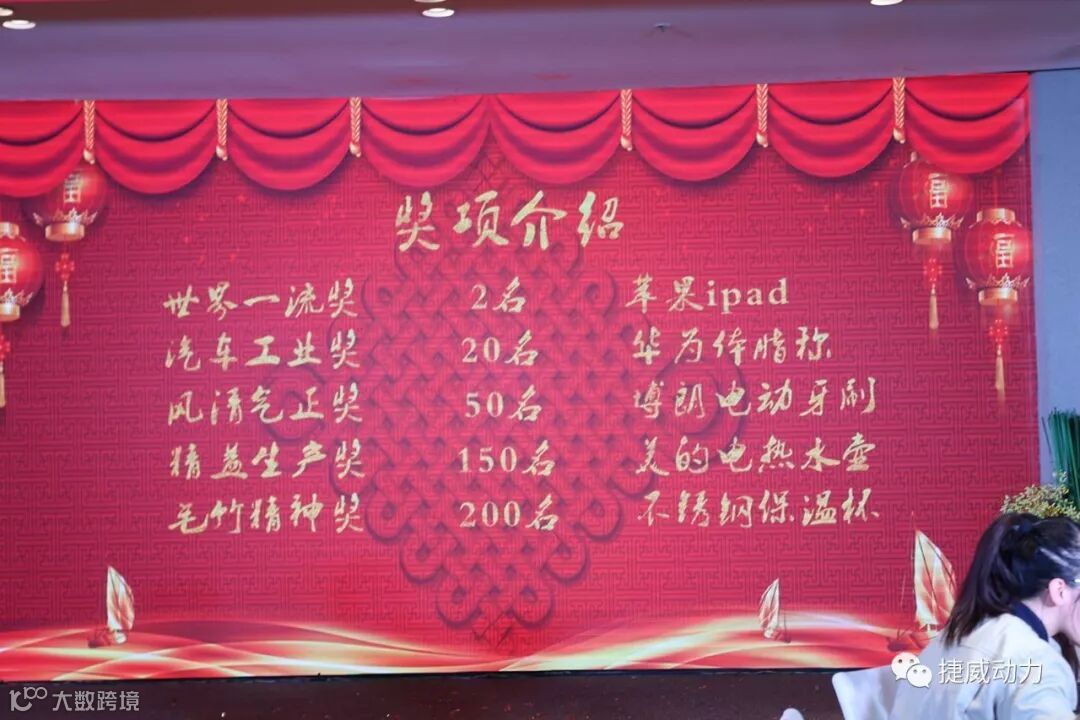 奖项介绍
世界一流奖 2名 苹果ipad
汽车工业奖 20名 华为体脂称
风清气正奖 50名 博朗电动牙刷
精益生产奖 150名 美的电热水壶
毛竹精神奖 200名 不锈钢保温杯
福
福
福
福
捷威动力
大数跨境